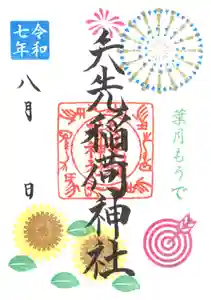 令和
七年
八月　日
矢先稲荷神社
葉月もうで